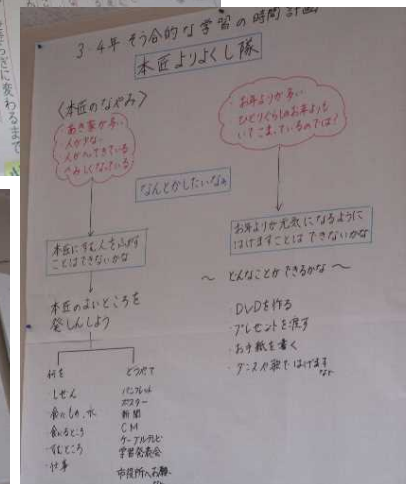 3.4年 そう合的な学習の時間計画
本匠よりよくし隊
〈本匠のなやみ〉
・あき家が多い
・人が少ない
・人がへってきている
・さみしくなっている
・お年よりが多い
・ひとりぐらしのお年よりも
いてこまっているのでは!
なんとかしたいなぁ
本匠にすむ人をふやす
ことはできないかな
お年よりが元気になるように
はげますことはできないかな
本匠のよいところを
発しんしよう
～どんなことができるかな～
・DVDを作る
・プレゼントを渡す
・お手紙を書く
・ダンスや歌ではげます
など
何を
・しぜん
・食べもの、水
・食べるところ
・すむところ
・仕事
どうやって
パンフレット
ポスター
新聞
CM
ケーブルテレビ
学習発表会
市役所へお願い
など
らっきに変わるまで